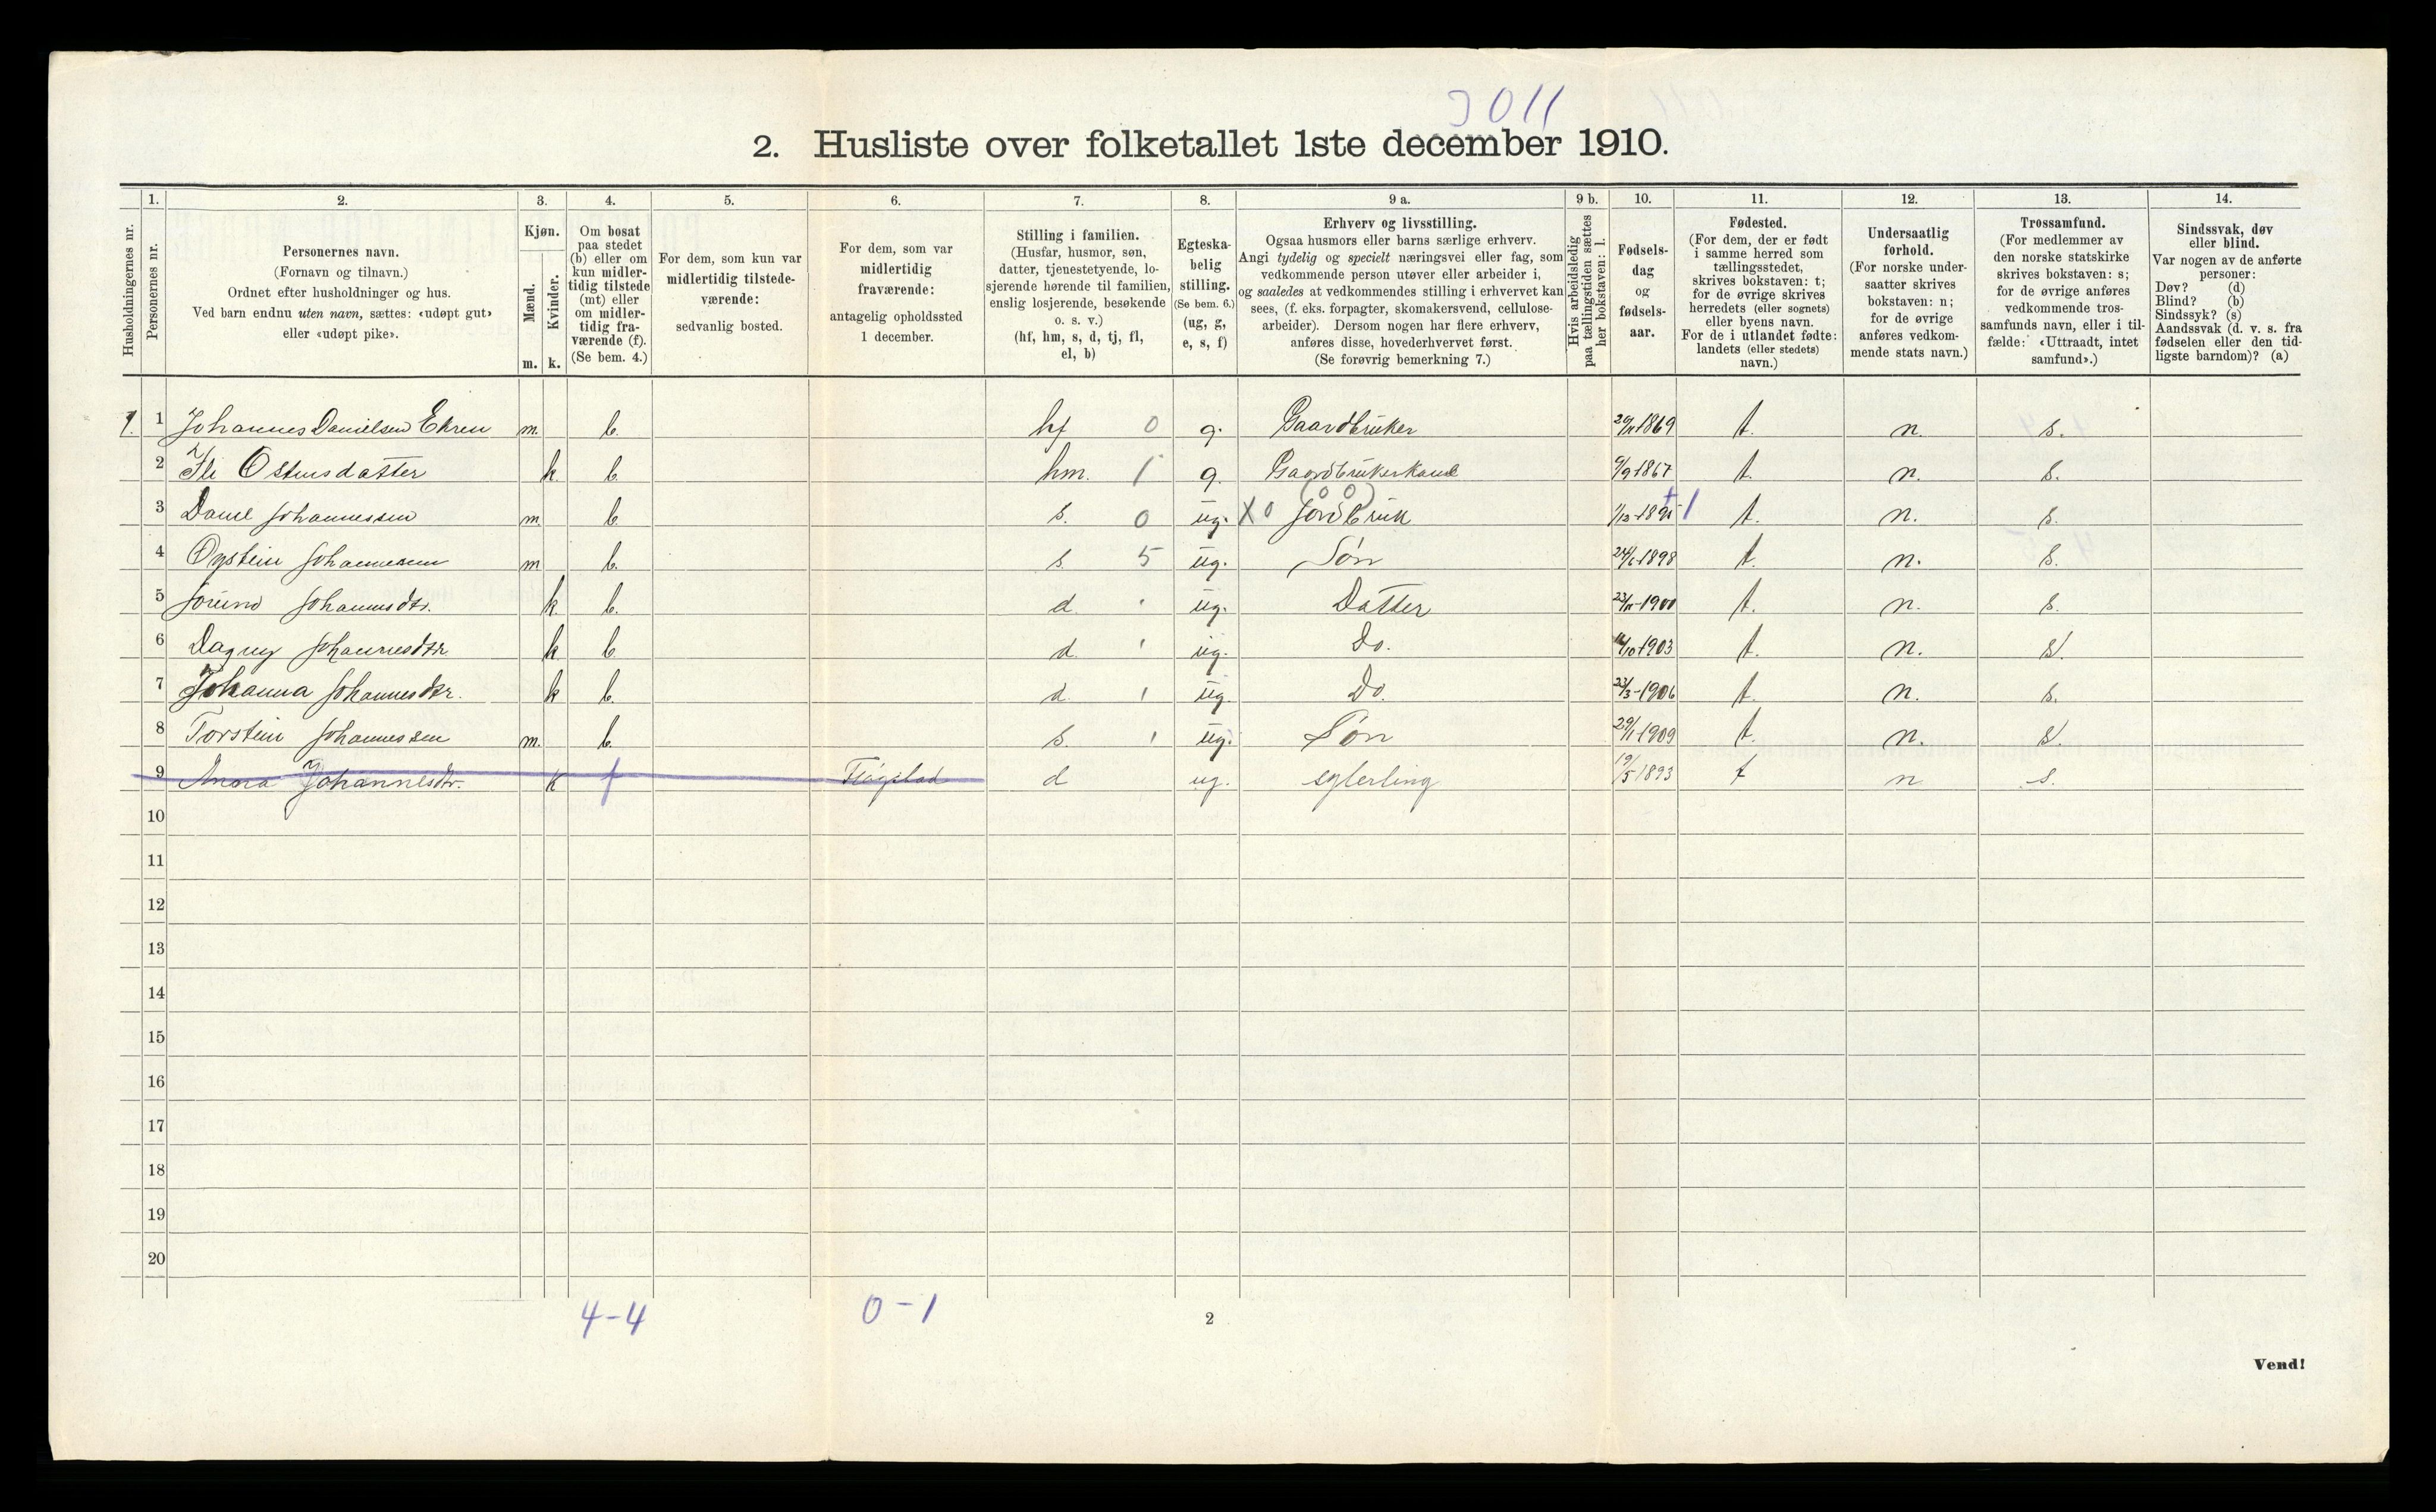 3011
2. Husliste over folketallet 1ste december 1910.
Husholdningernes nr.
1.
Personernes nr.
2.
Personernes navn.
(Fornavn og tilnavn.)
Ordnet efter husholdninger og hus.
Ved barn endnu uten navn, sættes: «udøpt gut»
eller «udøpt pike».
3.
Kjøn.
Mænd.
Kvinder.
m. k.
4.
Om bosat
paa stedet
(b) eller om
kun midler-
tidig tilstede
(mt) eller
om midler-
tidig fra-
værende (f).
(Se bem. 4.)
5.
For dem, som kun var
midlertidig tilstede-
værende:
sedvanlig bosted.
6.
For dem, som var
midlertidig
fraværende:
antagelig opholdssted
1 december.
7.
Stilling i familien.
(Husfar, husmor, søn,
datter, tjenestetyende, lo-
sjerende hørende til familien,
enslig losjerende, besøkende
o. s. v.)
(hf, hm, s, d, tj, fl,
el, b)
8.
Egteska-
belig
stilling.
(Se bem. 6.)
(ug, g,
e, s, f)
9 a.
Erhverv og livsstilling.
Ogsaa husmors eller barns særlige erhverv.
Angi tydelig og specielt næringsvei eller fag, som
vedkommende person utøver eller arbeider i,
og saaledes at vedkommendes stilling i erhvervet kan
sees, (f. eks. forpagter, skomakersvend, cellulose-
arbeider). Dersom nogen har flere erhverv,
anføres disse, hovederhvervet først.
(Se forøvrig bemerkning 7.)
9 b.
Hvis arbeidsledig
paa tællingstiden sættes
her bokstaven: l.
10.
Fødsels-
dag
og
fødsels-
aar.
11.
Fødested.
(For dem, der er født
i samme herred som
tællingsstedet,
skrives bokstaven: t;
for de øvrige skrives
herredets (eller sognets)
eller byens navn.
For de i utlandet fødte:
landets (eller stedets)
navn.)
12.
Undersaatlig
forhold.
(For norske under-
saatter skrives
bokstaven: n;
for de øvrige
anføres vedkom-
mende stats navn.)
13.
Trossamfund.
(For medlemmer av
den norske statskirke
skrives bokstaven: s;
for de øvrige anføres
vedkommende tros-
samfunds navn, eller i til-
fælde: «Uttraadt, intet
samfund».)
14.
Sindssvak, døv
eller blind.
Var nogen av de anførte
personer:
Døv? (d)
Blind? (b)
Sindssyk? (s)
Aandssvak (d. v. s. fra
fødselen eller den tid-
ligste barndom)? (a)
1. 1 Johannes Danielsen Ekren m. b. hf 0 g. Gaardbruker 1869 t. n. s.
2 k. b. hm. 1 g. Gaardbrukerkone 6/9 1867 t. n. s.
3 Daniel Johannessen m. b. s. 0 ug. X0 Jordbruk 1/12-1895 1 t. n. s.
4 Oystein Johannessen m b. s. 5 ug. Søn 24/6 1898 t. n. s.
5 Jorund Johannesdtr. k. b. d ug. Datter 23/11-1900 t. n. s.
6 Dagny Johannesdtr k. b. d. ug. Do. 16/10 1903 t. n. s.
7 Johanna Johannesdtr. k b. d. ug. Do. 23/3-1906 t. n. s.
8 Torstein Johannessen m. b. s. ug. Søn 29/1 1909 t. n. s.
9 Anna Johannesdtr. k f d ug. sylerling 19/5 1893 t n s.
10
11
12
13
14
15
16
17
18
19
20
4-4 0-1
2
Vend!